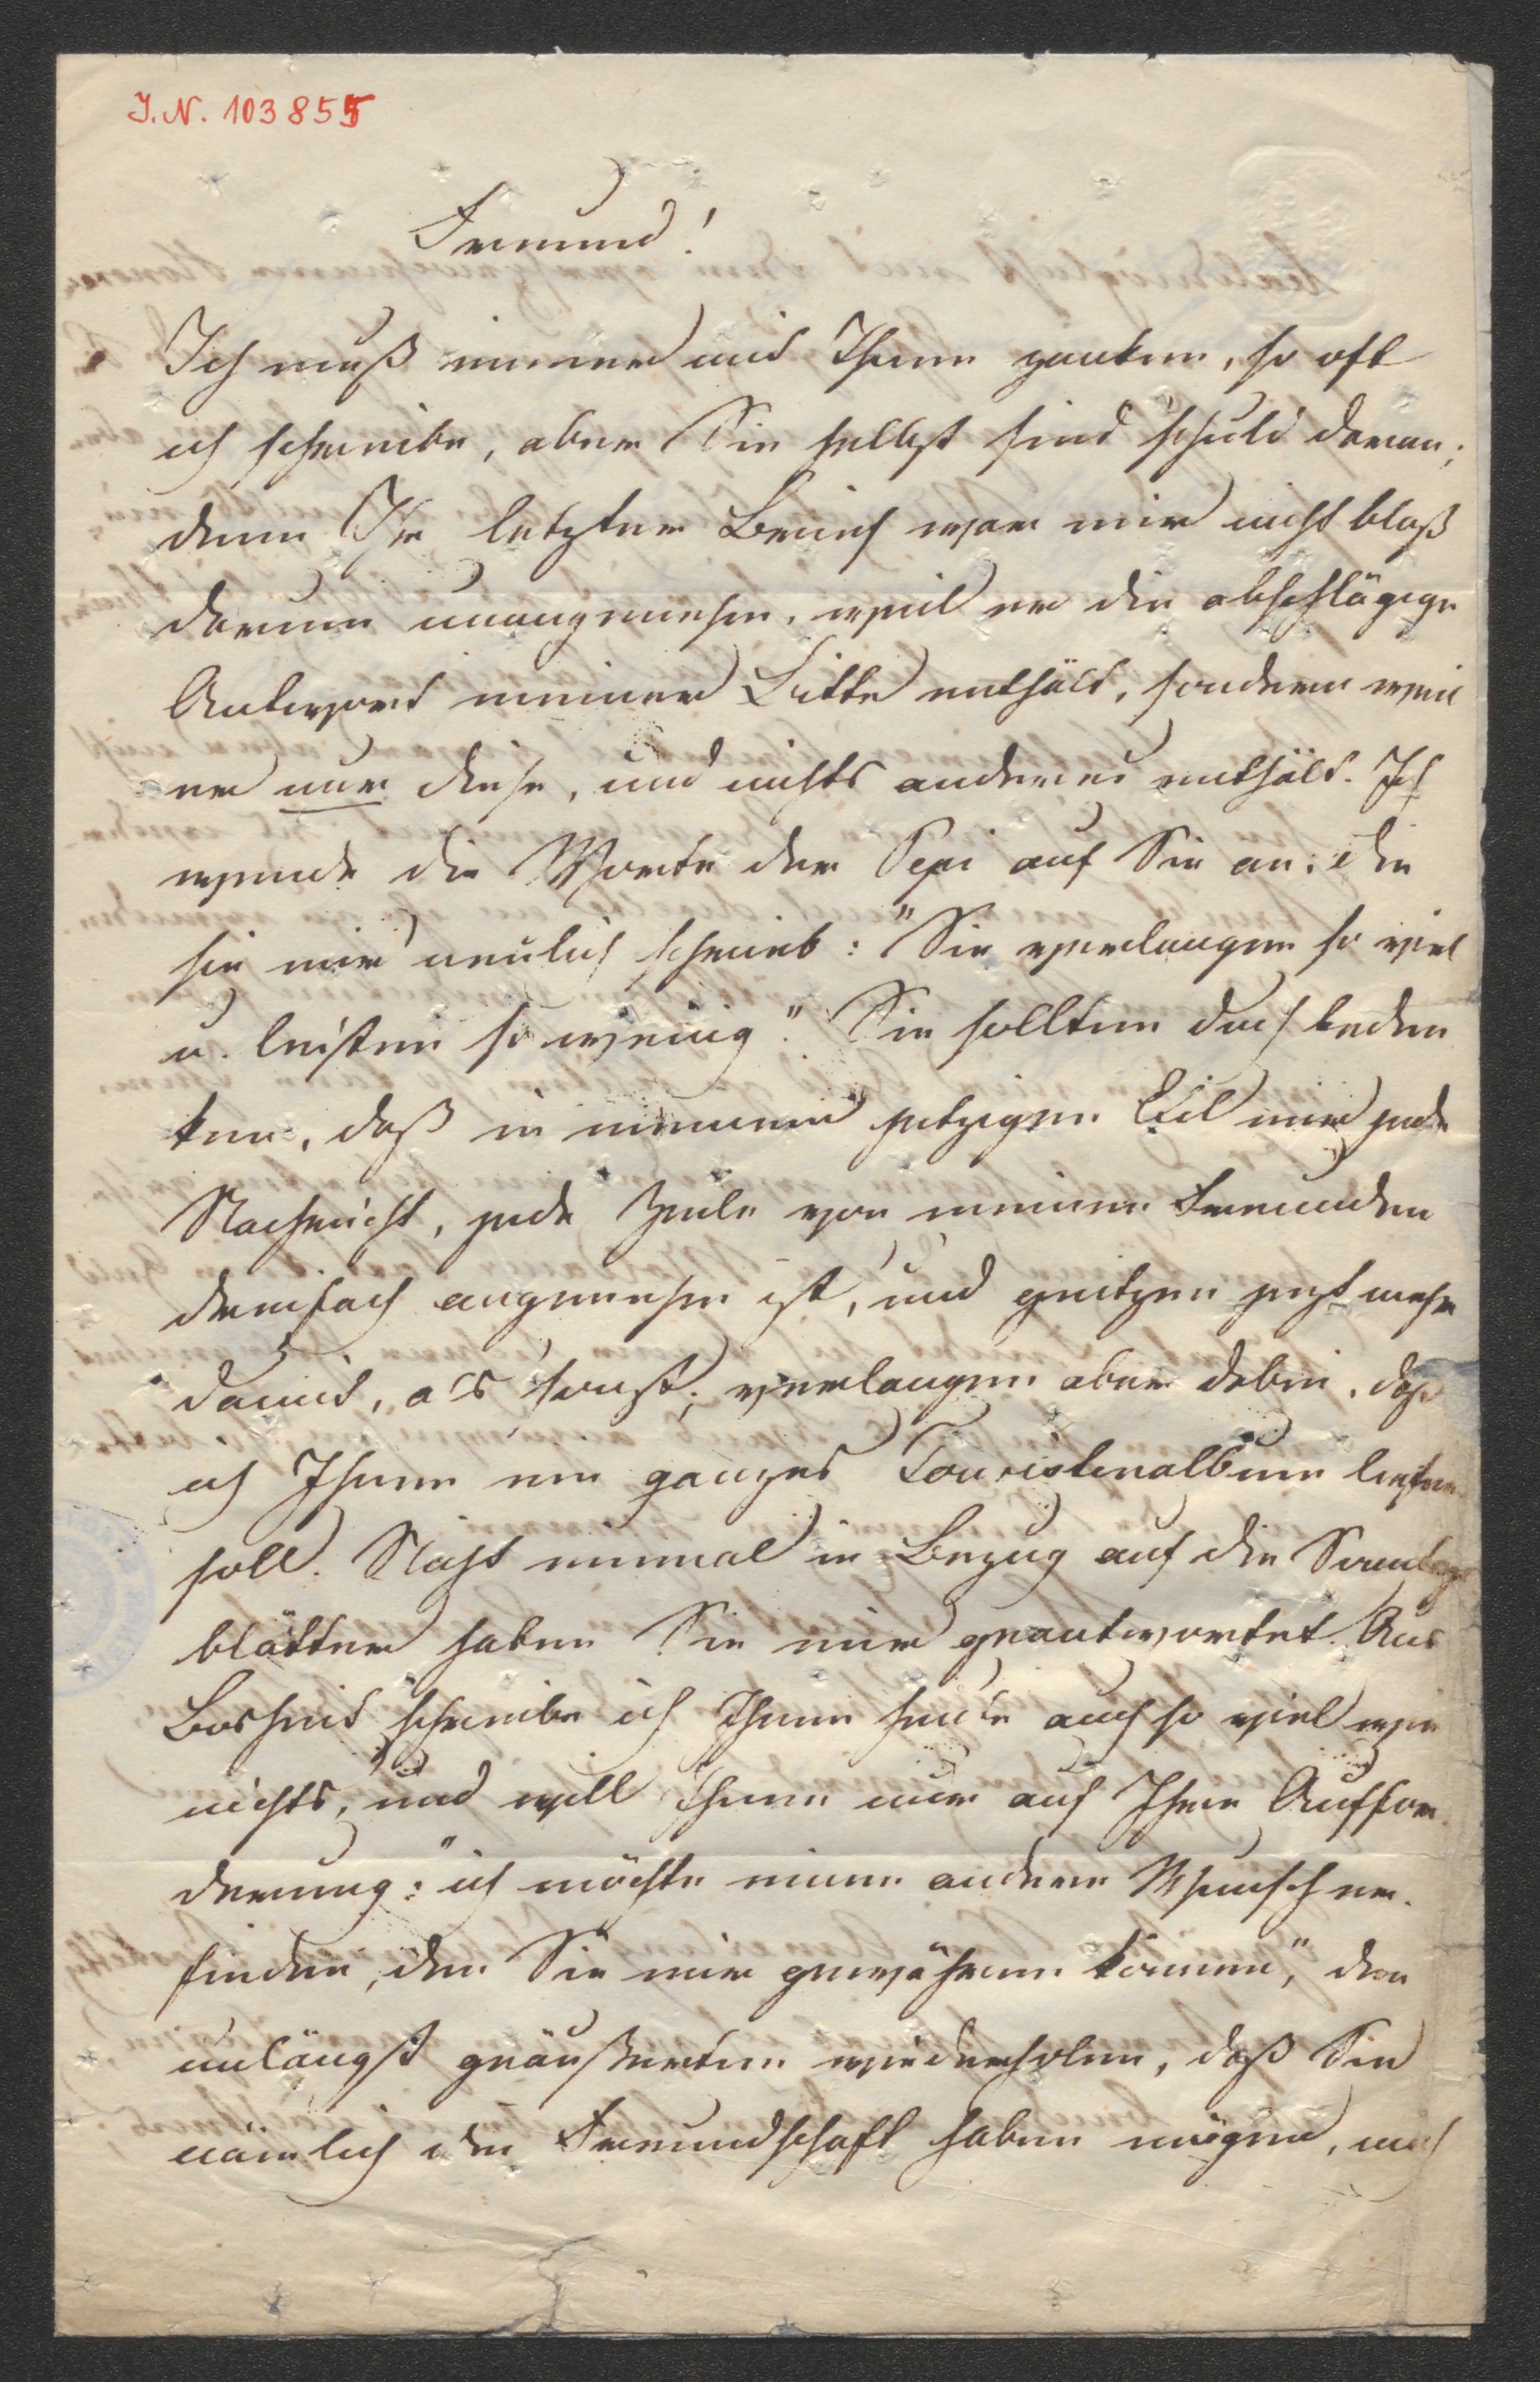 I. N. 103855
Freund!
Ich muß immer mit Ihnen zanken, so oft
ich schreibe, aber Sie selbst sind schuld daran;
denn Ihr letzter Brief war mir nicht bloß
darum unangenehm, weil er die abschlägige
Antwort meiner Bitte enthält, sondern weil
er nur diese, und nichts anderes enthält. Ich
wende die Worte der Pepi auf Sie an, die
sie mir neulich schrieb: "Sie verlangen so viel
u. leisten so wenig". Sie sollten doch beden
ken, daß in meinem jetzigen Exil mir jede
Nachricht, jede Zeile von meinen Freunden
dreifach angenehm ist, und geitzen jetzt mehr
damit, als sonst; verlangen aber dabei, daß
ich Ihnen ein ganzes Touristenalbum liefern
soll. Nicht einmal in Bezug auf die Sonntags
blätter haben Sie mir geantwortet. Aus
Bosheit schreibe ich Ihnen heute auch so viel wie
nichts, und will Ihnen nur auf Ihre Auffor
derung: "ich möchte einen andern Wunsch er-
finden, den Sie mir gewähren können", den
unlängst geäußerten wiederholen, daß Sie
nämlich die Freundschaft haben mögen, mich